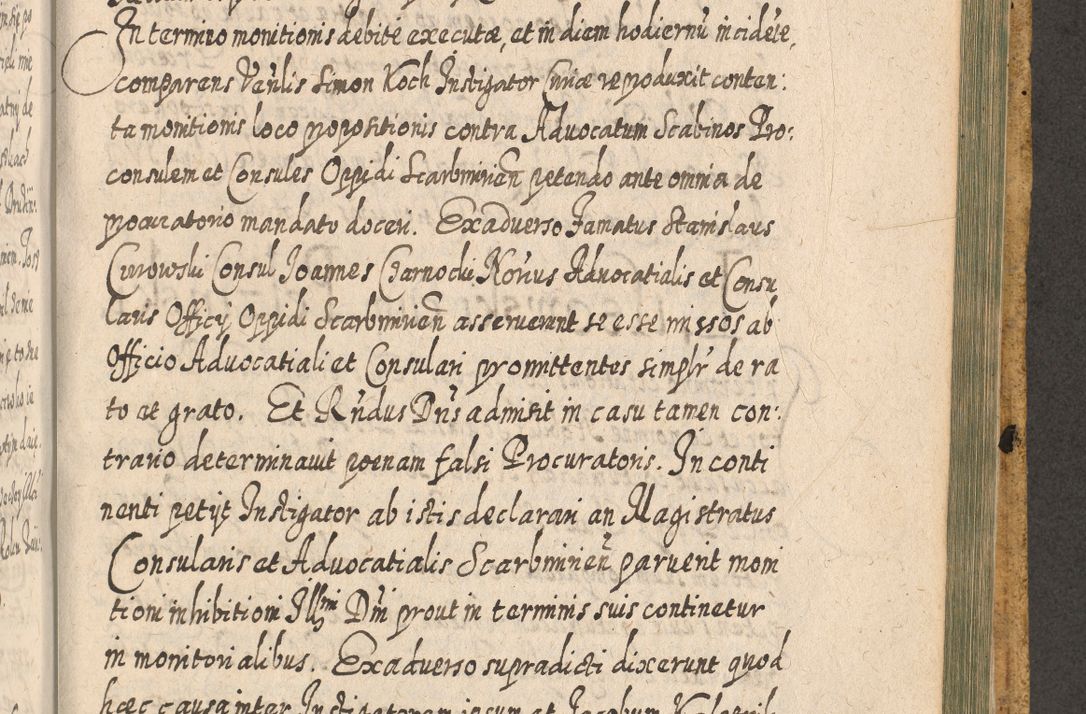 In termino monitionis debite executæ, et in diem hodiernū incidēte,
comparens Venlis Simon Koch Instigator Curiæ reproduxit conten:
ta monitionis loco propositionis contra Advocatum Scabinos Pro:
consulem et Consules Oppidi Scarbimirien̄ petendo ante omnia de
procuratorio mandato doceri. Exadverso Famatus Stanislaus
Curowski Consul Joannes Charnocki Notrius Advocatialis et Consu
laris Officÿ Oppidi Scarbimirien̄ asseruerunt se esse missos ab
Officio Advocatiali et Consulari promittentes simplr de ra
to et grato. Et Rndus Dns admisit in casu tamen con:
trario determinavit poenam falsi Procuratoris. In conti
nenti petÿt Instigator ab istis declarari an Magistratus
Consularis et Advocatialis Scarbimirien̄ paruerit moni
tioni inhibitioni Illmi Dni prout in terminis suis continetur
in monitorialibus. Exadverso supradicti dixerunt quod
hæc causa inter Instigatorem ipsum et Jacobum